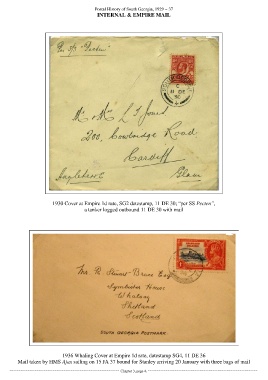 Postal History of South Georgia, 1929 – 37
INTERNAL & EMPIRE MAIL
Per S/S "Pecten"
11 DE
30
Mr & Mrs L T Jones
200, Cowbridge Road
Cardiff
Glam
1930 Cover at Empire 1d rate, SG2 datestamp, 11 DE 30; "per SS Pecten",
a tanker logged outbound 11 DE 30 with mail
Mr R. Stuart Bruce Esq
Symbister House
Whalsay
Shetland
Scotland
SOUTH GEORGIA POSTMARK
1936 Whaling Cover at Empire 1d rate, datestamp SG4, 11 DE 36
Mail taken by HMS Ajax sailing on 15 JA 37 bound for Stanley arriving 20 January with three bags of mail
Chapter 3, page 4